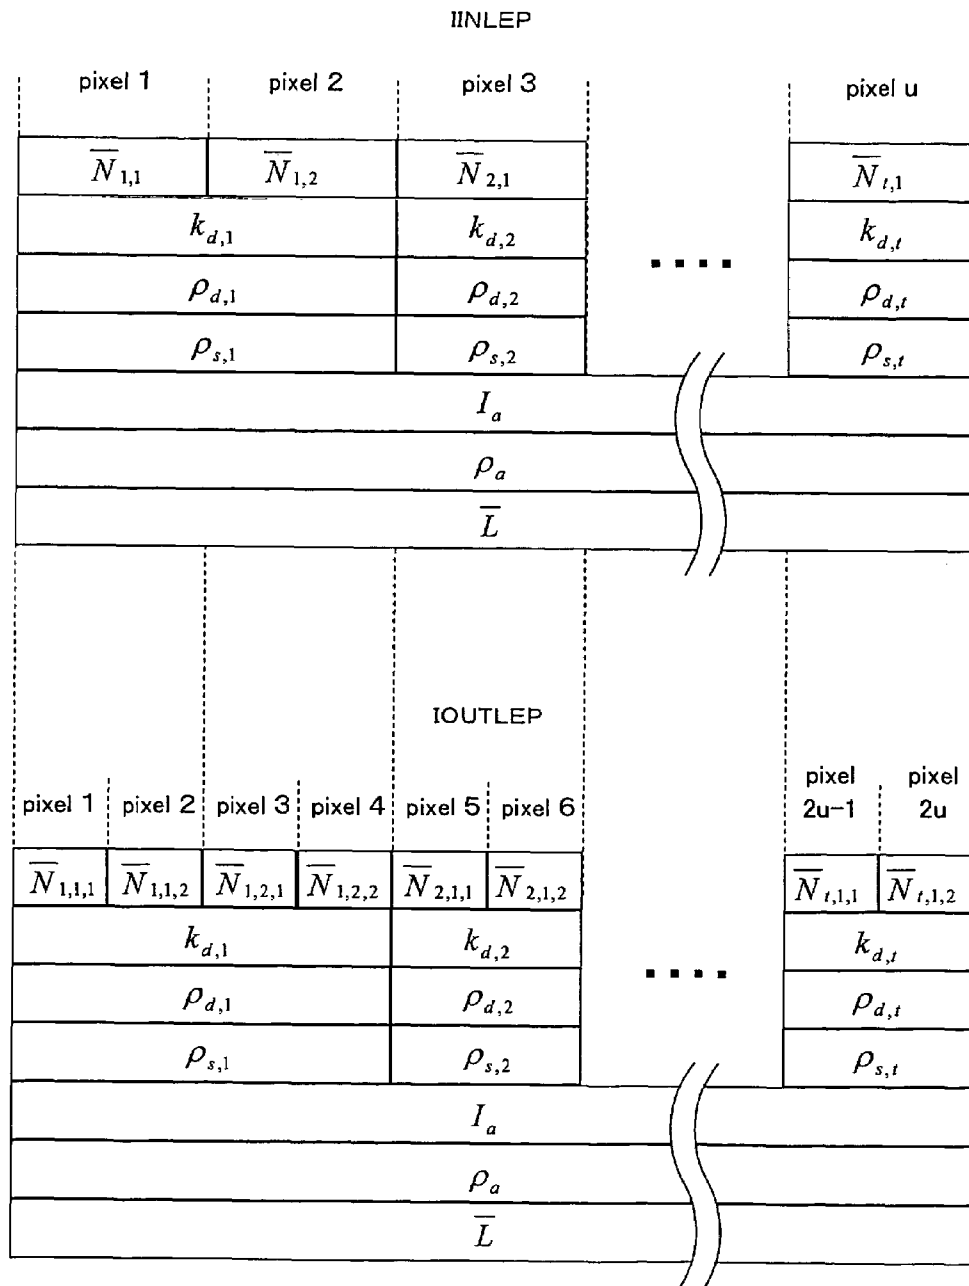 IINLEP
pixel 1 pixel 2 pixel 3 pixel u
N̅1,1 N̅1,2 N̅2,1 N̅t,1
kd,1 kd,2 kd,t
ρd,1 ρd,2 ρd,t
ρs,1 ρs,2 ρs,t
Ia
ρa
L̅
IOUTLEP
pixel 1 pixel 2 pixel 3 pixel 4 pixel 5 pixel 6 pixel 2u-1 pixel 2u
N̅1,1,1 N̅1,1,2 N̅1,2,1 N̅1,2,2 N̅2,1,1 N̅2,1,2 N̅t,1,1 N̅t,1,2
kd,1 kd,2 kd,t
ρd,1 ρd,2 ρd,t
ρs,1 ρs,2 ρs,t
Ia
ρa
L̅